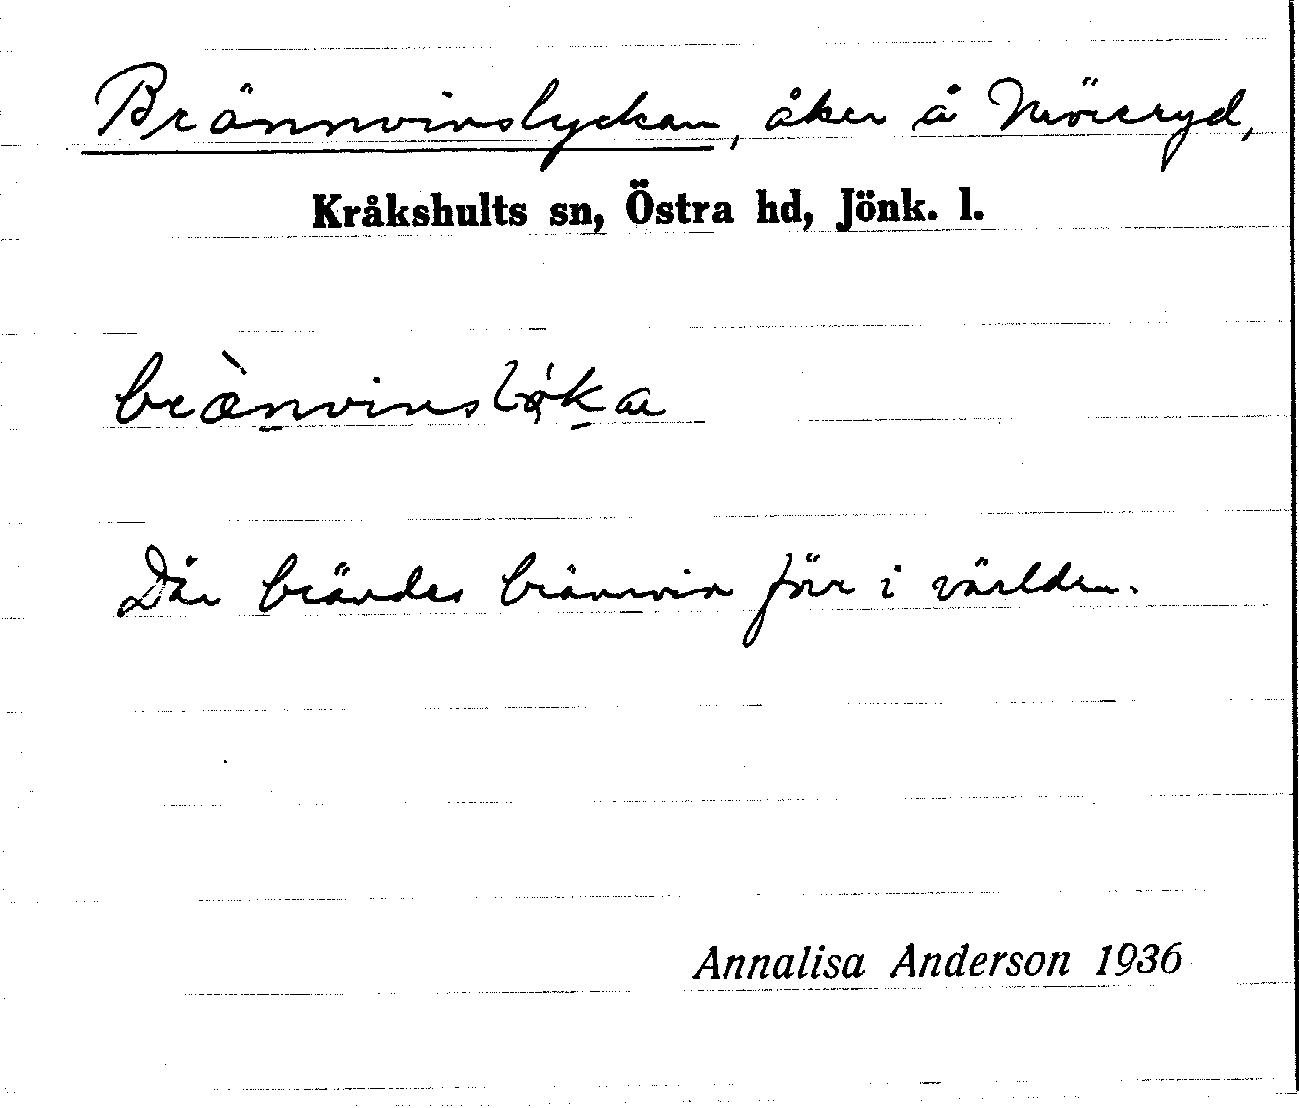 Brännvinslyckan, åker å Mörsryd,
Kråkshults sn, Östra hd, Jönk. l.
Där brändes brännvin förr i världen.
Annalisa Anderson 1936